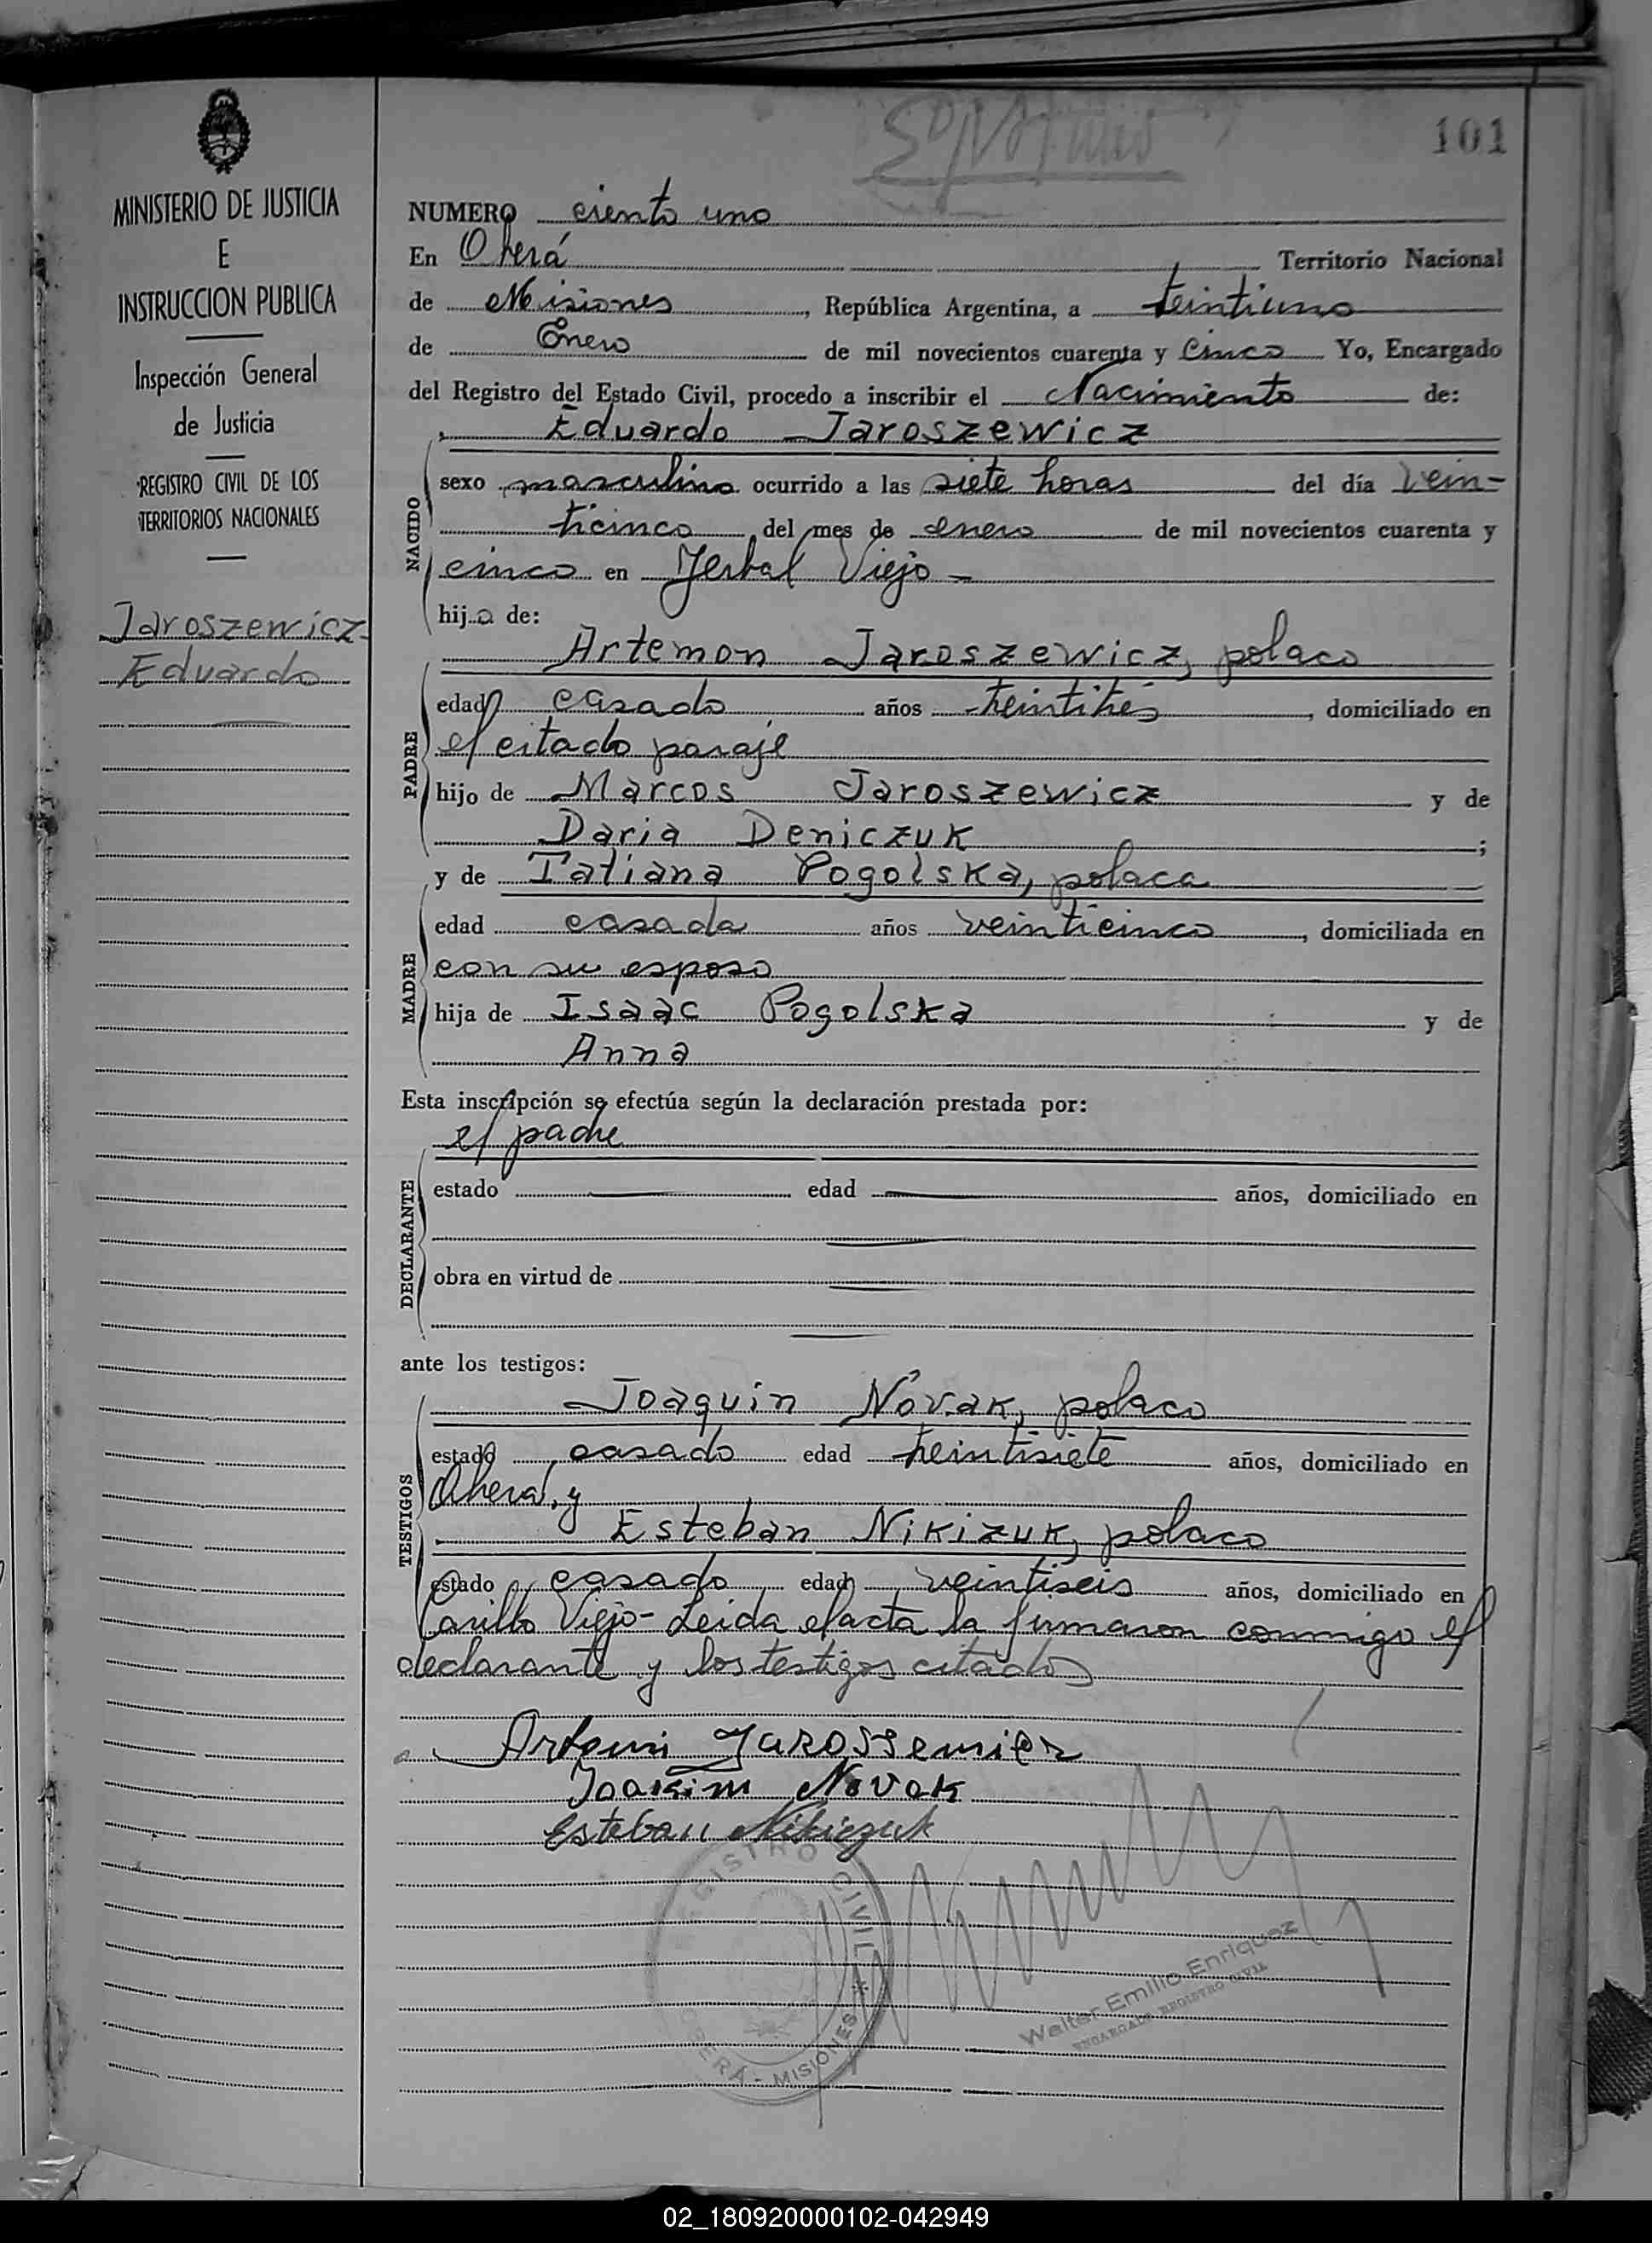 101
MINISTERIO DE JUSTICIA
E
INSTRUCCION PUBLICA
Inspección General
de Justicia
REGISTRO CIVIL DE LOS
TERRITORIOS NACIONALES
Jaroszewicz
Eduardo
NUMERO ciento uno
En Oberá Territorio Nacional
de Misiones, República Argentina, a treintiuno
de Enero de mil novecientos cuarenta y Cinco Yo, Encargado
del Registro del Estado Civil, procedo a inscribir el Nacimiento de:
Eduardo Jaroszewicz
NACIDO
sexo masculino ocurrido a las siete horas del día vein-
ticinco del mes de enero de mil novecientos cuarenta y
cinco en Yerbal Viejo -
hijo de:
PADRE
Artemon Jaroszewicz, polaco
edad casado años treintitrés, domiciliado en
el citado paraje
hijo de Marcos Jaroszewicz y de
Daria Deniczuk;
MADRE
y de Tatiana Pogolska, polaca
edad casada años veinticinco, domiciliada en
con su esposo
hija de Isaac Pogolska y de
Anna
Esta inscripción se efectúa según la declaración prestada por:
el padre
DECLARANTE
estado edad años, domiciliado en
obra en virtud de
ante los testigos:
TESTIGOS
Joaquin Novak, polaco
estado casado edad treintisiete años, domiciliado en
Oberá, y
Esteban Nikizuk, polaco
estado casado edad veintiseis años, domiciliado en
Viejo - Leida el acta la firmaron conmigo el
declarante y los testigos citados
Artemi Jarossewicz
Joakim Novak
Esteban Nikiczuk
REGISTRO CIVIL
OBERÁ - MISIONES
Walter Emilio Enriquez
ENCARGADO REGISTRO CIVIL
02_180920000102-042949